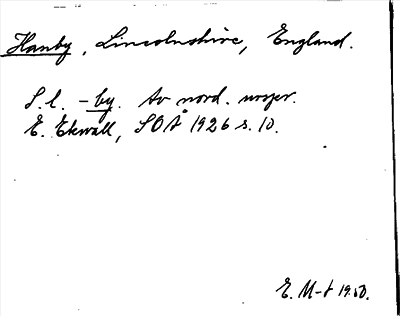 Hanby, Lincolnshire, England.
S.l. -by. Av nord. urspr.
E. Ekwall, SOÅ 1926 s. 10.
E. M-t 1950.